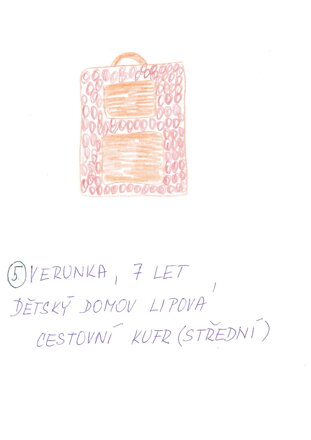 ⑤ VERUNKA, 7 LET
DĚTSKÝ DOMOV LIPOVÁ
CESTOVNÍ KUFR (STŘEDNÍ)